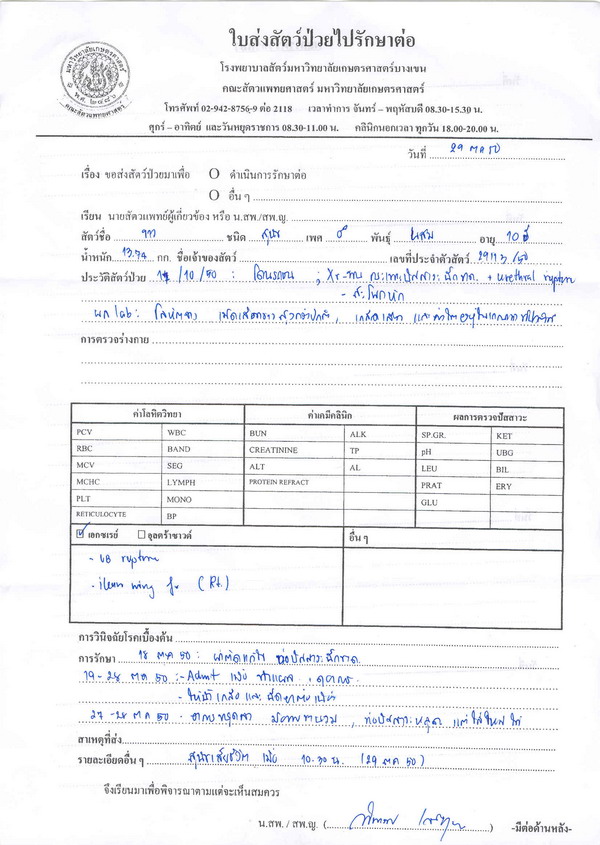 ใบส่งสัตว์ป่วยไปรักษาต่อ
โรงพยาบาลสัตว์มหาวิทยาลัยเกษตรศาสตร์บางเขน
คณะสัตวแพทยศาสตร์ มหาวิทยาลัยเกษตรศาสตร์
โทรศัพท์ 02-942-8756-9 ต่อ 2118 เวลาทำการ จันทร์ – พฤหัสบดี 08.30-15.30 น.
ศุกร์ – อาทิตย์ และวันหยุดราชการ 08.30-11.00 น. คลินิกนอกเวลา ทุกวัน 18.00-20.00 น.
วันที่ 29 ตค 50
เรื่อง ขอส่งสัตว์ป่วยมาเพื่อ O ดำเนินการรักษาต่อ
O อื่น ๆ
เรียน นายสัตวแพทย์ผู้เกี่ยวข้อง หรือ น.สพ./สพ.ญ.
สัตว์ชื่อ ชนิด สุนัข เพศ พันธุ์ ผสม อายุ 10 ปี
น้ำหนัก 13.74 กก. ชื่อเจ้าของสัตว์ เลขที่ประจำตัวสัตว์
ประวัติสัตว์ป่วย /10/50 : โดนรถชน ; กระเพาะปัสสาวะฉีกขาด + urethral rupture
- สะโพกหัก
ผล lab :
การตรวจร่างกาย
ค่าโลหิตวิทยา ค่าเคมีคลินิก ผลการตรวจปัสสาวะ
PCV WBC BUN ALK SP.GR. KET
RBC BAND CREATININE TP pH UBG
MCV SEG ALT AL LEU BIL
MCHC LYMPH PROTEIN REFRACT PRAT ERY
PLT MONO GLU
RETICULOCYTE BP
เอกซเรย์ อุลตร้าซาวด์ อื่น ๆ
- UB rupture
- ileum wing fx (Rt.)
การวินิจฉัยโรคเบื้องต้น
การรักษา 18 ตค 50 : ผ่าตัดแก้ไข ท่อปัสสาวะฉีกขาด
19-28 ตค 50 :- Admit เพื่อ ทำแผล
- ให้น้ำเกลือ และ
27-28 ตค 50 ท่อปัสสาวะหลุด
สาเหตุที่ส่ง
รายละเอียดอื่น ๆ สุนัขเสียชีวิต เมื่อ 10.30 น. (29 ตค 50)
จึงเรียนมาเพื่อพิจารณาตามแต่จะเห็นสมควร
น.สพ. / สพ.ญ. ( )
-มีต่อด้านหลัง-